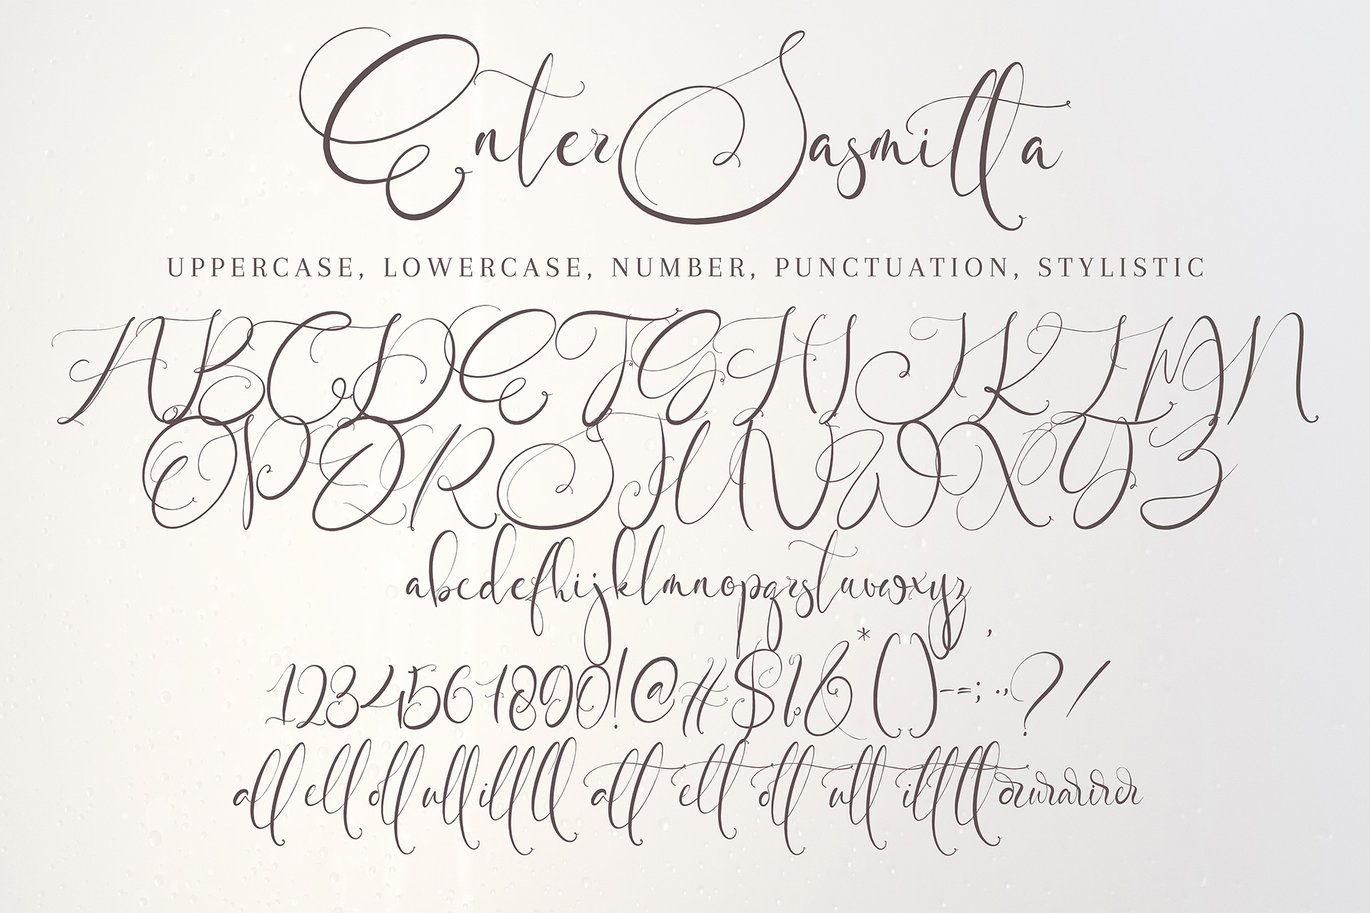 Enter Sasmitta
UPPERCASE, LOWERCASE, NUMBER, PUNCTUATION, STYLISTIC
ABCDEFGHIJKLMN
OPQRSTUVWXYZ
abcdefhijklmnopqrstuvwxyz
1234567890!@#$%&*()-=;.,?/'
all ell oll ull illlll att ett ott utt itttttt or ur ar ir er